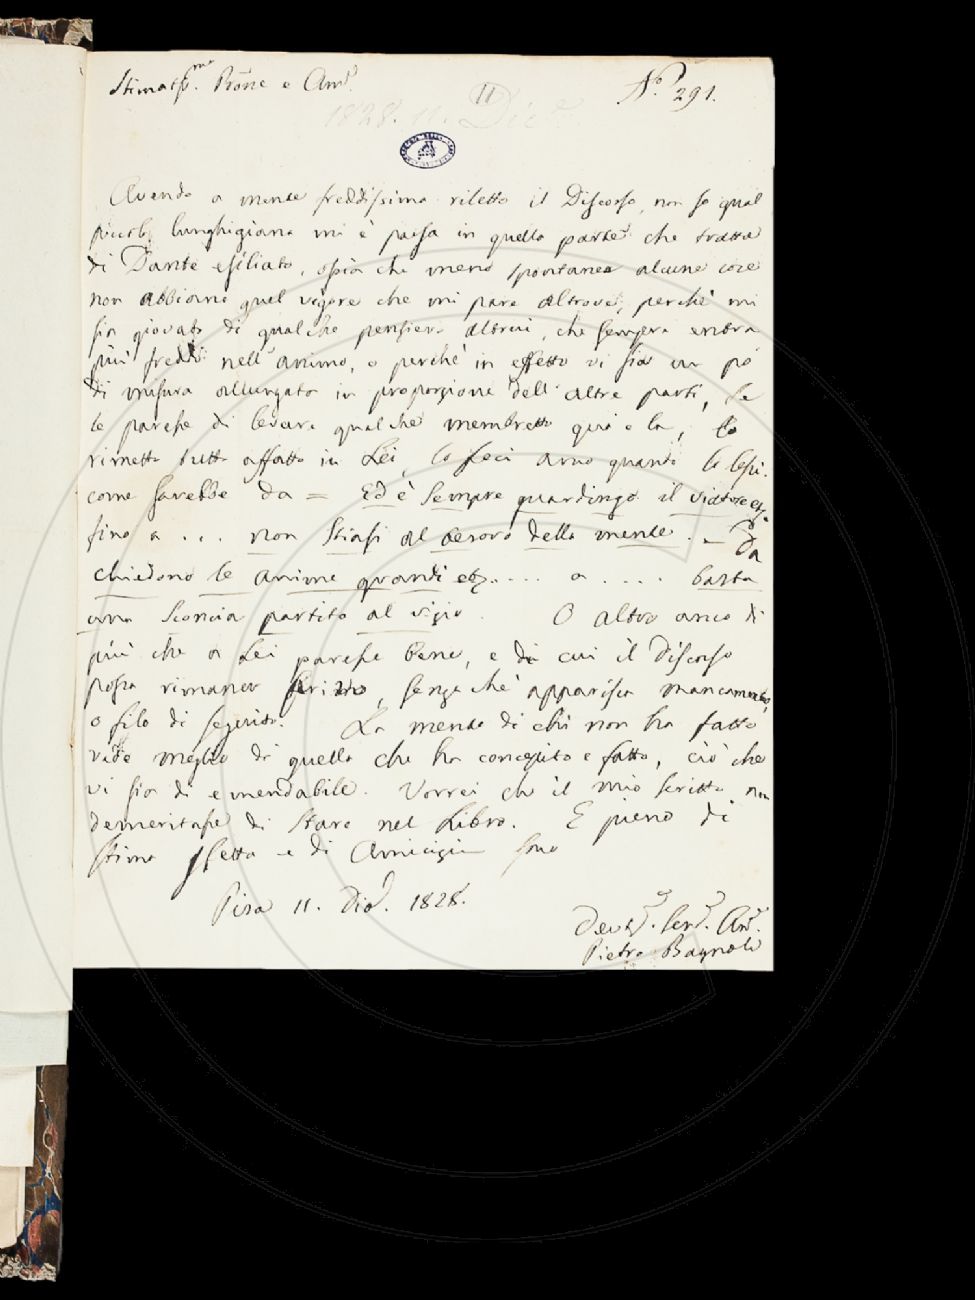 Stimatiss.mo Prone e Am.o
N.o 291.
11
1828. 11. Dic.e
Avendo a mente freddissima riletto il Discorso, non so qual
piccola lunghigiana mi è parsa in quella parte che tratta
di Dante esiliato, ossia che meno spontanea alcune cose
non abbiano quel vigore che mi pare altrove, perchè mi
sia giovato di qualche pensiero altrui, che sempre entra
più freddo nell'animo, o perchè in effetto vi sia un pò
di misura allungato in proporzione dell'altre parti, Se
le paresse di levare qualche membretto quà e la, lo
rimetto tutto affatto in Lei, lo feci anno quando lo lessi.
come sarebbe da = Ed è sempre guardingo il viatore etc.
fino a ... non Stiasi al tesoro della mente. - Da
chiedono le anime grandi etc..... a .... basta
una Sconcia partito al vizio. O altro anco di
più che a Lei paresse bene, e di cui il Discorso
possa rimaner privo, senza che apparisca mancamento,
o filo di seguito. La mente di chi non ha fatto
vede meglio di quella che ha concepito e fatto, ciò che
vi sia di emendabile. Vorrei che il mio Scritto non
demeritasse di Stare nel Libro. E pieno di
stima schietta e di Amicizia sono
Pisa 11. Dic.e 1828.
Dev.mo Ser.e Am.o
Pietro Bagnoli